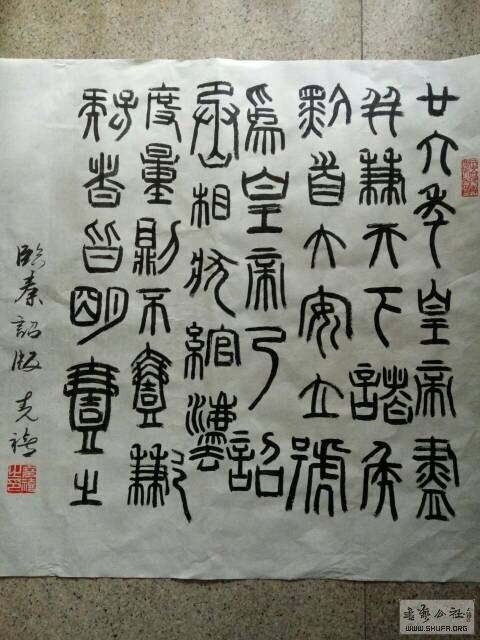 廿六年皇帝盡
并兼天下諸侯
黔首大安立號
為皇帝乃詔
丞相狀綰灋
度量則不壹歉
疑者皆明壹之
臨秦詔版
書藝公社
WWW.SHUFA.ORG